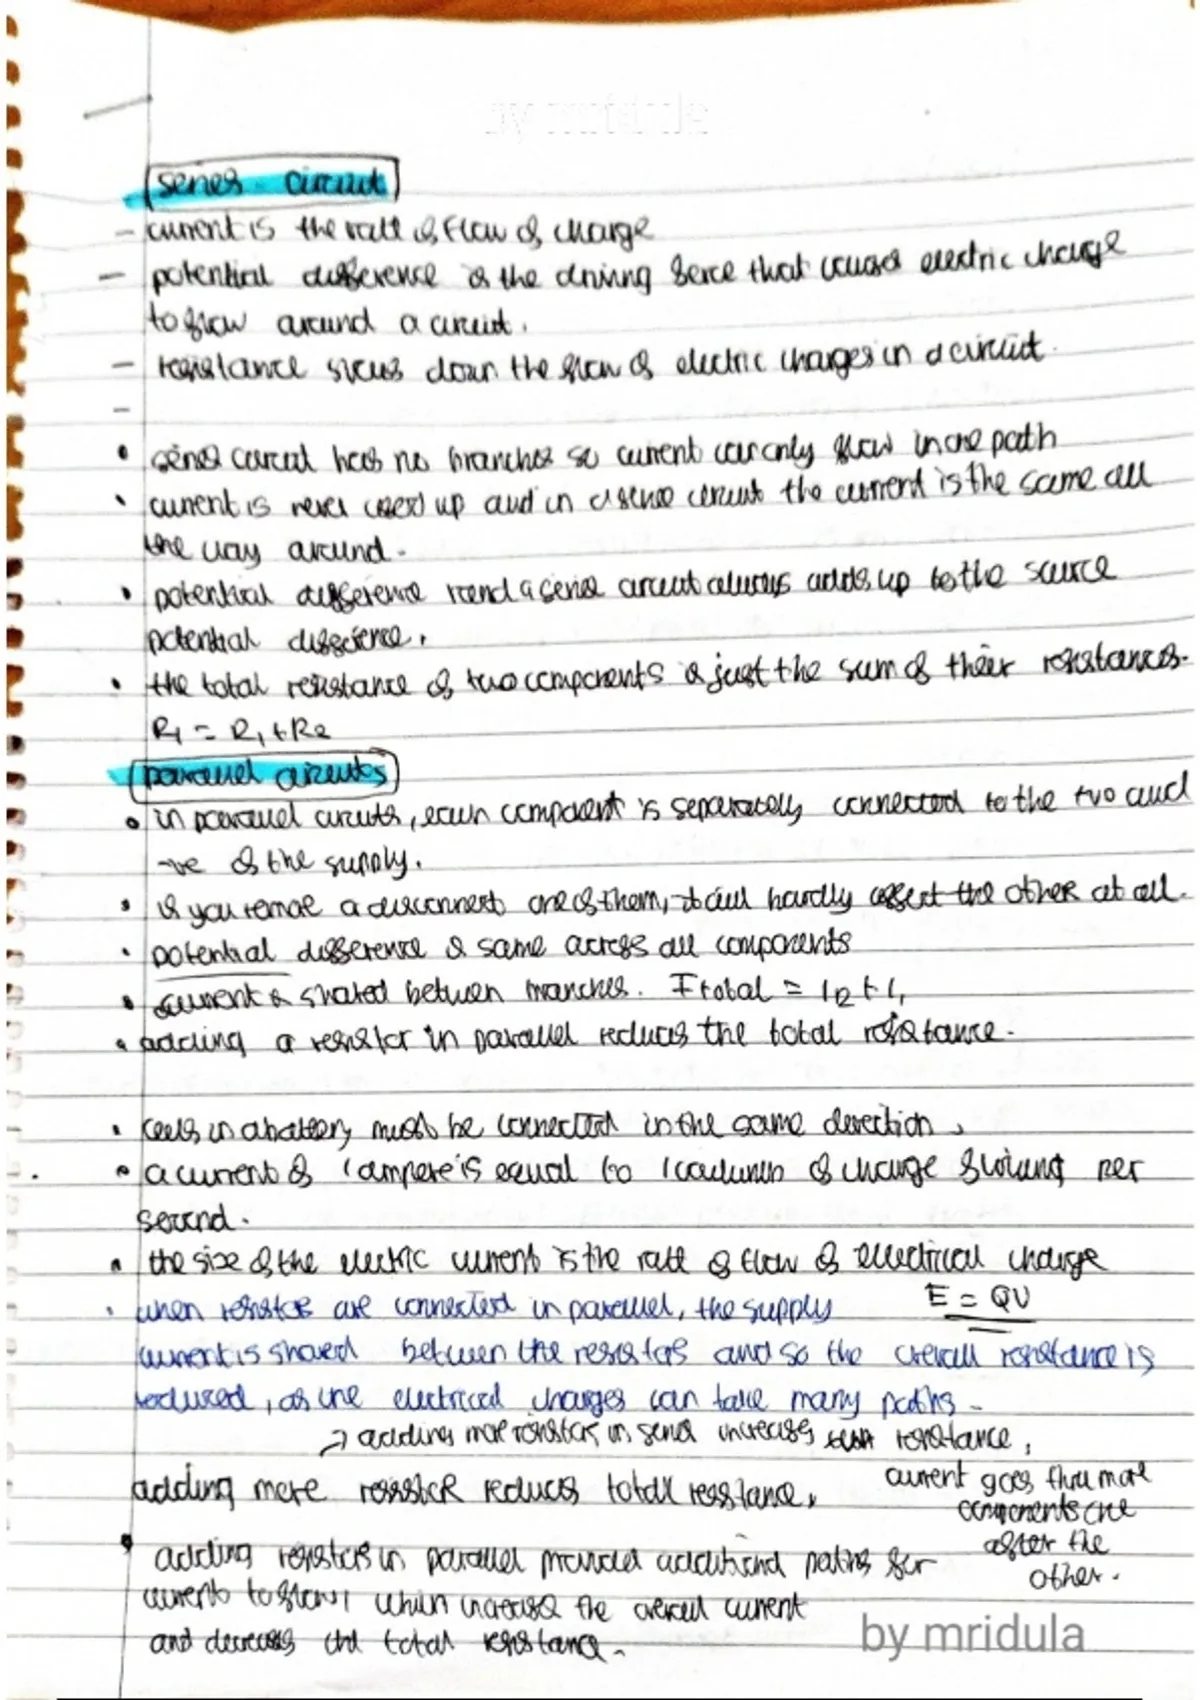 by mridula
series circuit
- current is the rate of flow of charge
- potential difference is the driving force that causes electric charge
to flow around a circuit.
- resistance slows down the flow of electric charges in a circuit.
-
• series circuit has no branches so current can only flow in one path
• current is never used up and in a series circuit the current is the same all
the way around.
• potential difference round a series circuit always adds up to the source
potential difference.
• the total resistance of two components is just the sum of their resistances.
RT = R1 + R2
parallel circuits
• in parallel circuits, each component is separately connected to the +ve and
-ve of the supply.
• if you remove or disconnect one of them, it will hardly affect the other at all.
• potential difference is same across all components
• current is shared between branches. Itotal = I2 + I1
• adding a resistor in parallel reduces the total resistance.
• cells in a battery must be connected in the same direction.
• a current of 1 ampere is equal to 1 coulomb of charge flowing per
second.
• the size of the electric current is the rate of flow of electrical charge
• when resistors are connected in parallel, the supply E = QV
current is shared between the resistors and so the overall resistance is
reduced, as the electrical charges can take many paths.
→ adding more resistors in series increases total resistance,
adding more resistor reduces total resistance, current goes thru more
components one
after the
other.
• adding resistors in parallel provides additional paths for
current to flow, which increases the overall current
and decreases the total resistance.
by mridula